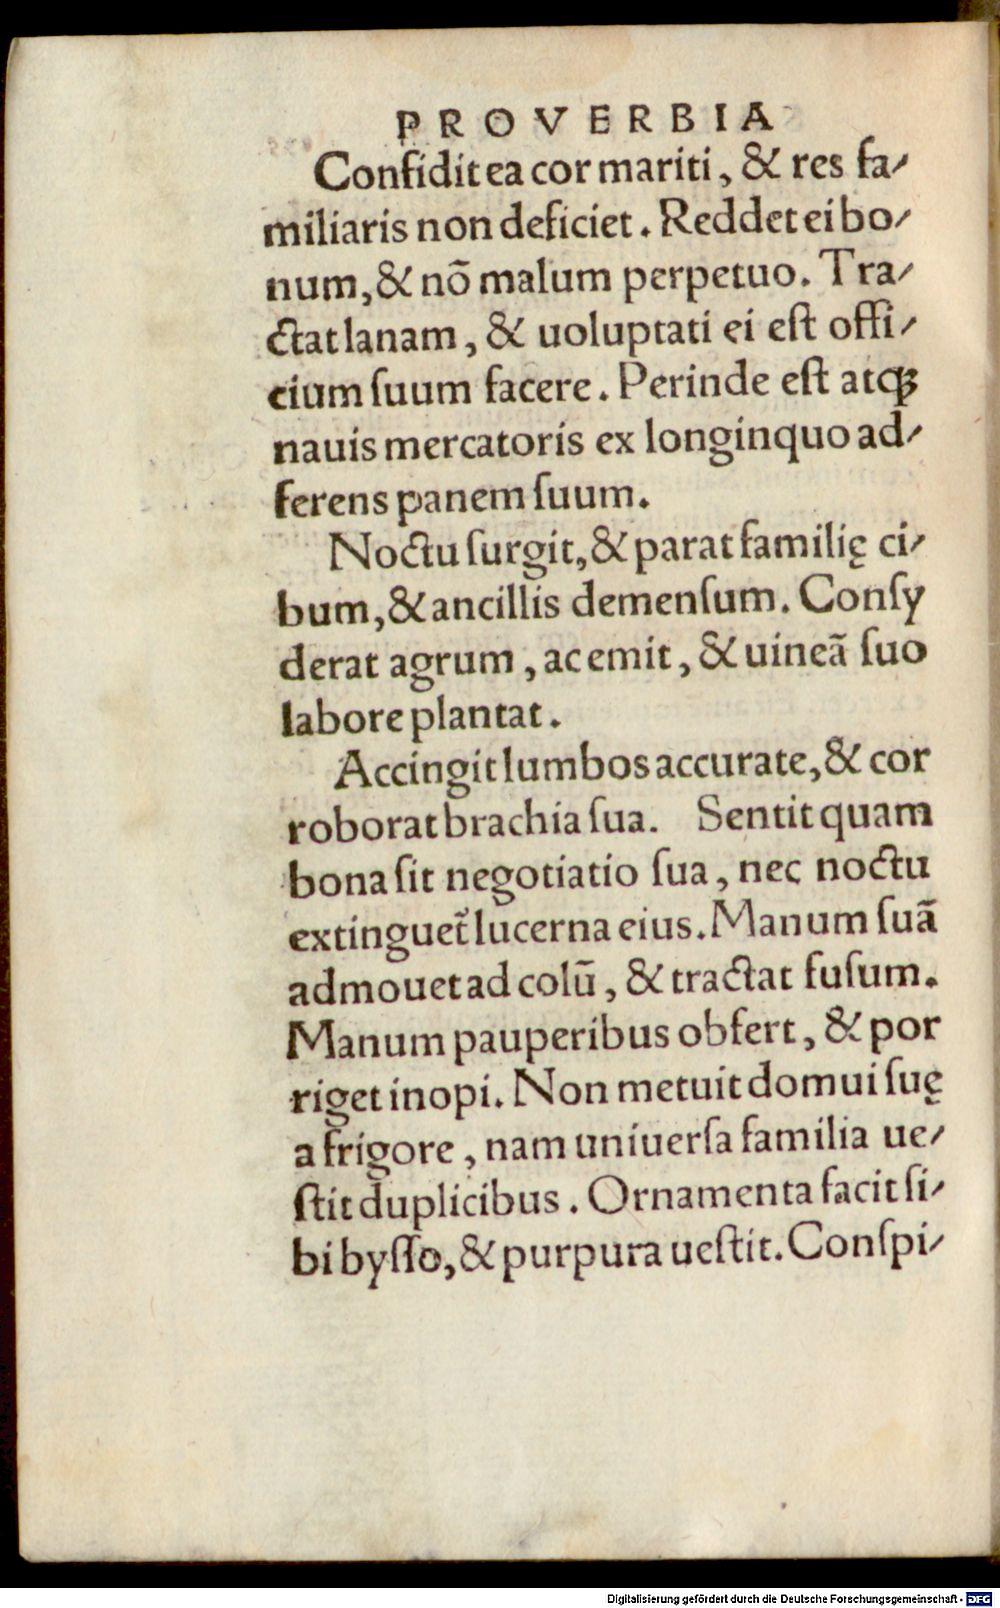 PROVERBIA
Confidit ea cor mariti, & res fa⸗
miliaris non deficiet. Reddet ei bo⸗
num, & nō malum perpetuo. Tra⸗
ctat lanam, & uoluptati ei eſt offi⸗
cium ſuum facere. Perinde eſt atqꝫ
nauis mercatoris ex longinquo ad⸗
ferens panem ſuum.
Noctu ſurgit, & parat familię ci⸗
bum, & ancillis demenſum. Conſy
derat agrum, ac emit, & uineā ſuo
labore plantat.
Accingit lumbos accurate, & cor
roborat brachia ſua. Sentit quam
bona ſit negotiatio ſua, nec noctu
extinguet᷑ lucerna eius. Manum ſuā
admouet ad colū, & tractat fuſum.
Manum pauperibus obfert, & por
riget inopi. Non metuit domui ſuę
a frigore, nam uniuerſa familia ue⸗
ſtit duplicibus. Ornamenta facit ſi⸗
bi byſſo, & purpura ueſtit. Conſpi⸗
Digitalisierung gefördert durch die Deutsche Forschungsgemeinschaft - DFG